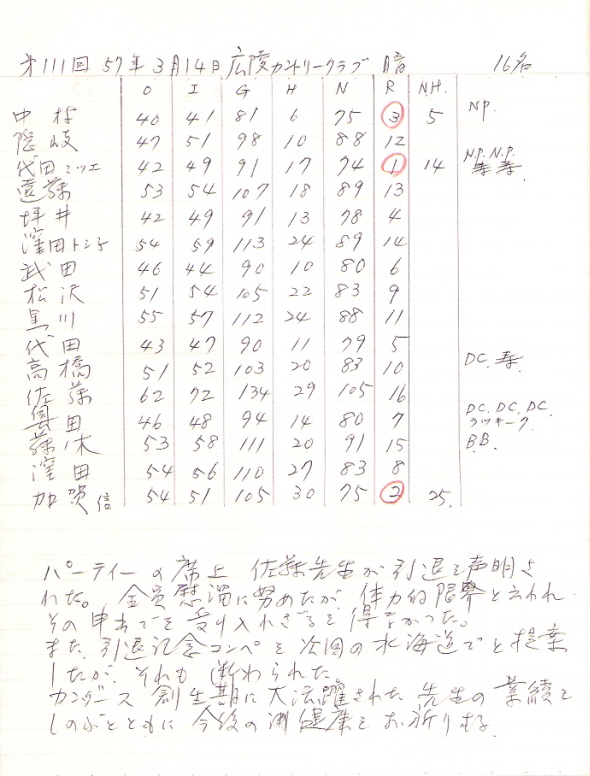 第111回 57年3月14日 広陵カントリークラブ 晴 16名
O I G H N R NH.
中村 40 41 81 6 75 3 5 NP.
隠岐 47 51 98 10 88 12
代田ミツエ 42 49 91 17 74 1 14 N.P. N.P. 寿 寿
遠藤 53 54 107 18 89 13
坪井 42 49 91 13 78 4
窪田トシ子 54 59 113 24 89 14
武田 46 44 90 10 80 6
松沢 51 54 105 22 83 9
黒川 55 57 112 24 88 11
代田 43 47 90 11 79 5
高橋 51 52 103 20 83 10 DC. 寿
佐藤 62 72 134 29 105 16
真田 46 48 94 14 80 7 DC. DC. DC. ラッキー7
藤木 53 58 111 20 91 15 B.B.
窪田 54 56 110 27 83 8
加賀信 54 51 105 30 75 2 25.
パーティーの席上 佐藤先生が引退を声明さ
れた。全員慰溜に努めたが、体力的限界と云われ
その申出でを受け入れざるを得なかった。
また、引退記念コンペを次回の北海道でと提案
したが、それも断わられた。
カンダース創生期に大活躍された先生の業績を
しのぶとともに今後の御健康をお祈りする。